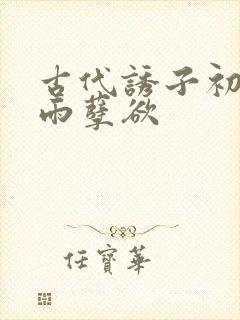 古代誘子初
雨孽欲
任寶華